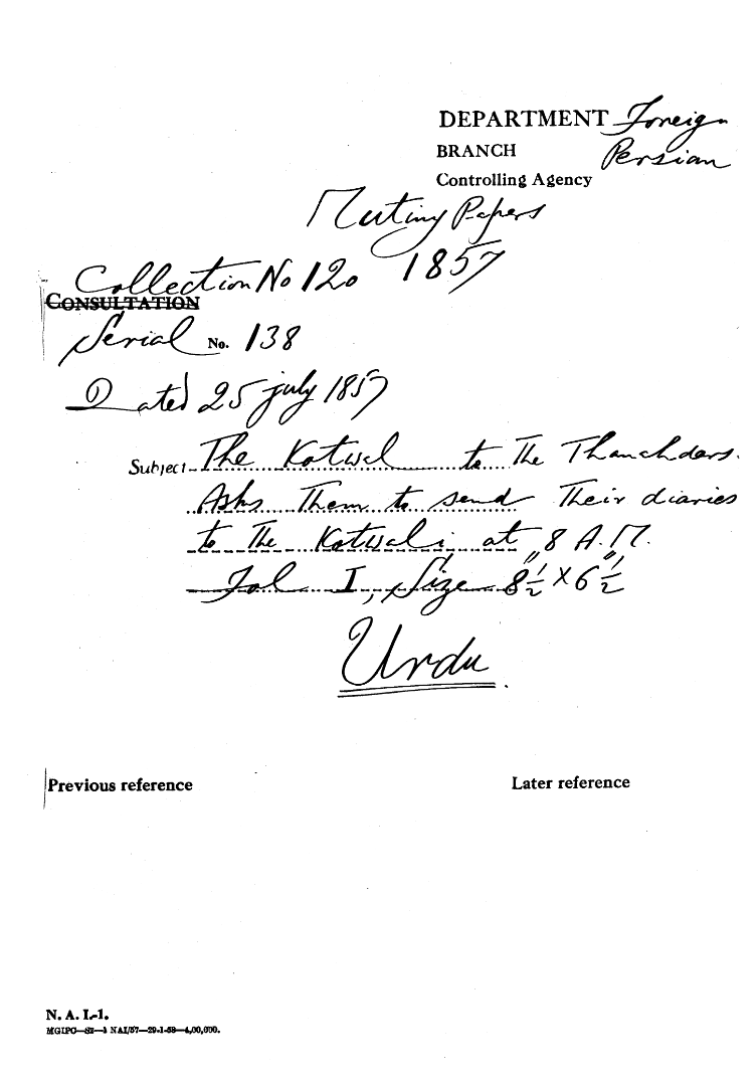 DEPARTMENT Foreign
BRANCH Persian
Controlling Agency
Mutiny Papers
1857
Collection No 120
CONSULTATION
Serial No. 138
Dated 25 july 1857
Subject The Kotwal to The Thanehdars.
Asks Them to send Their diaries
to The Kotwali at 8 A.M.
Fol I, Size 8½" × 6½"
Urdu
Previous reference
Later reference
N. A. I.-1.